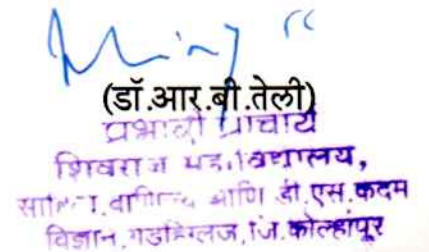 (डॉ.आर.बी.तेली)
प्रभारी प्राचार्य
शिवराज महाविद्यालय,
वाणिज्य आणि डी.एस.कदम
विज्ञान,गडहिंग्लज,जि.कोल्हापूर